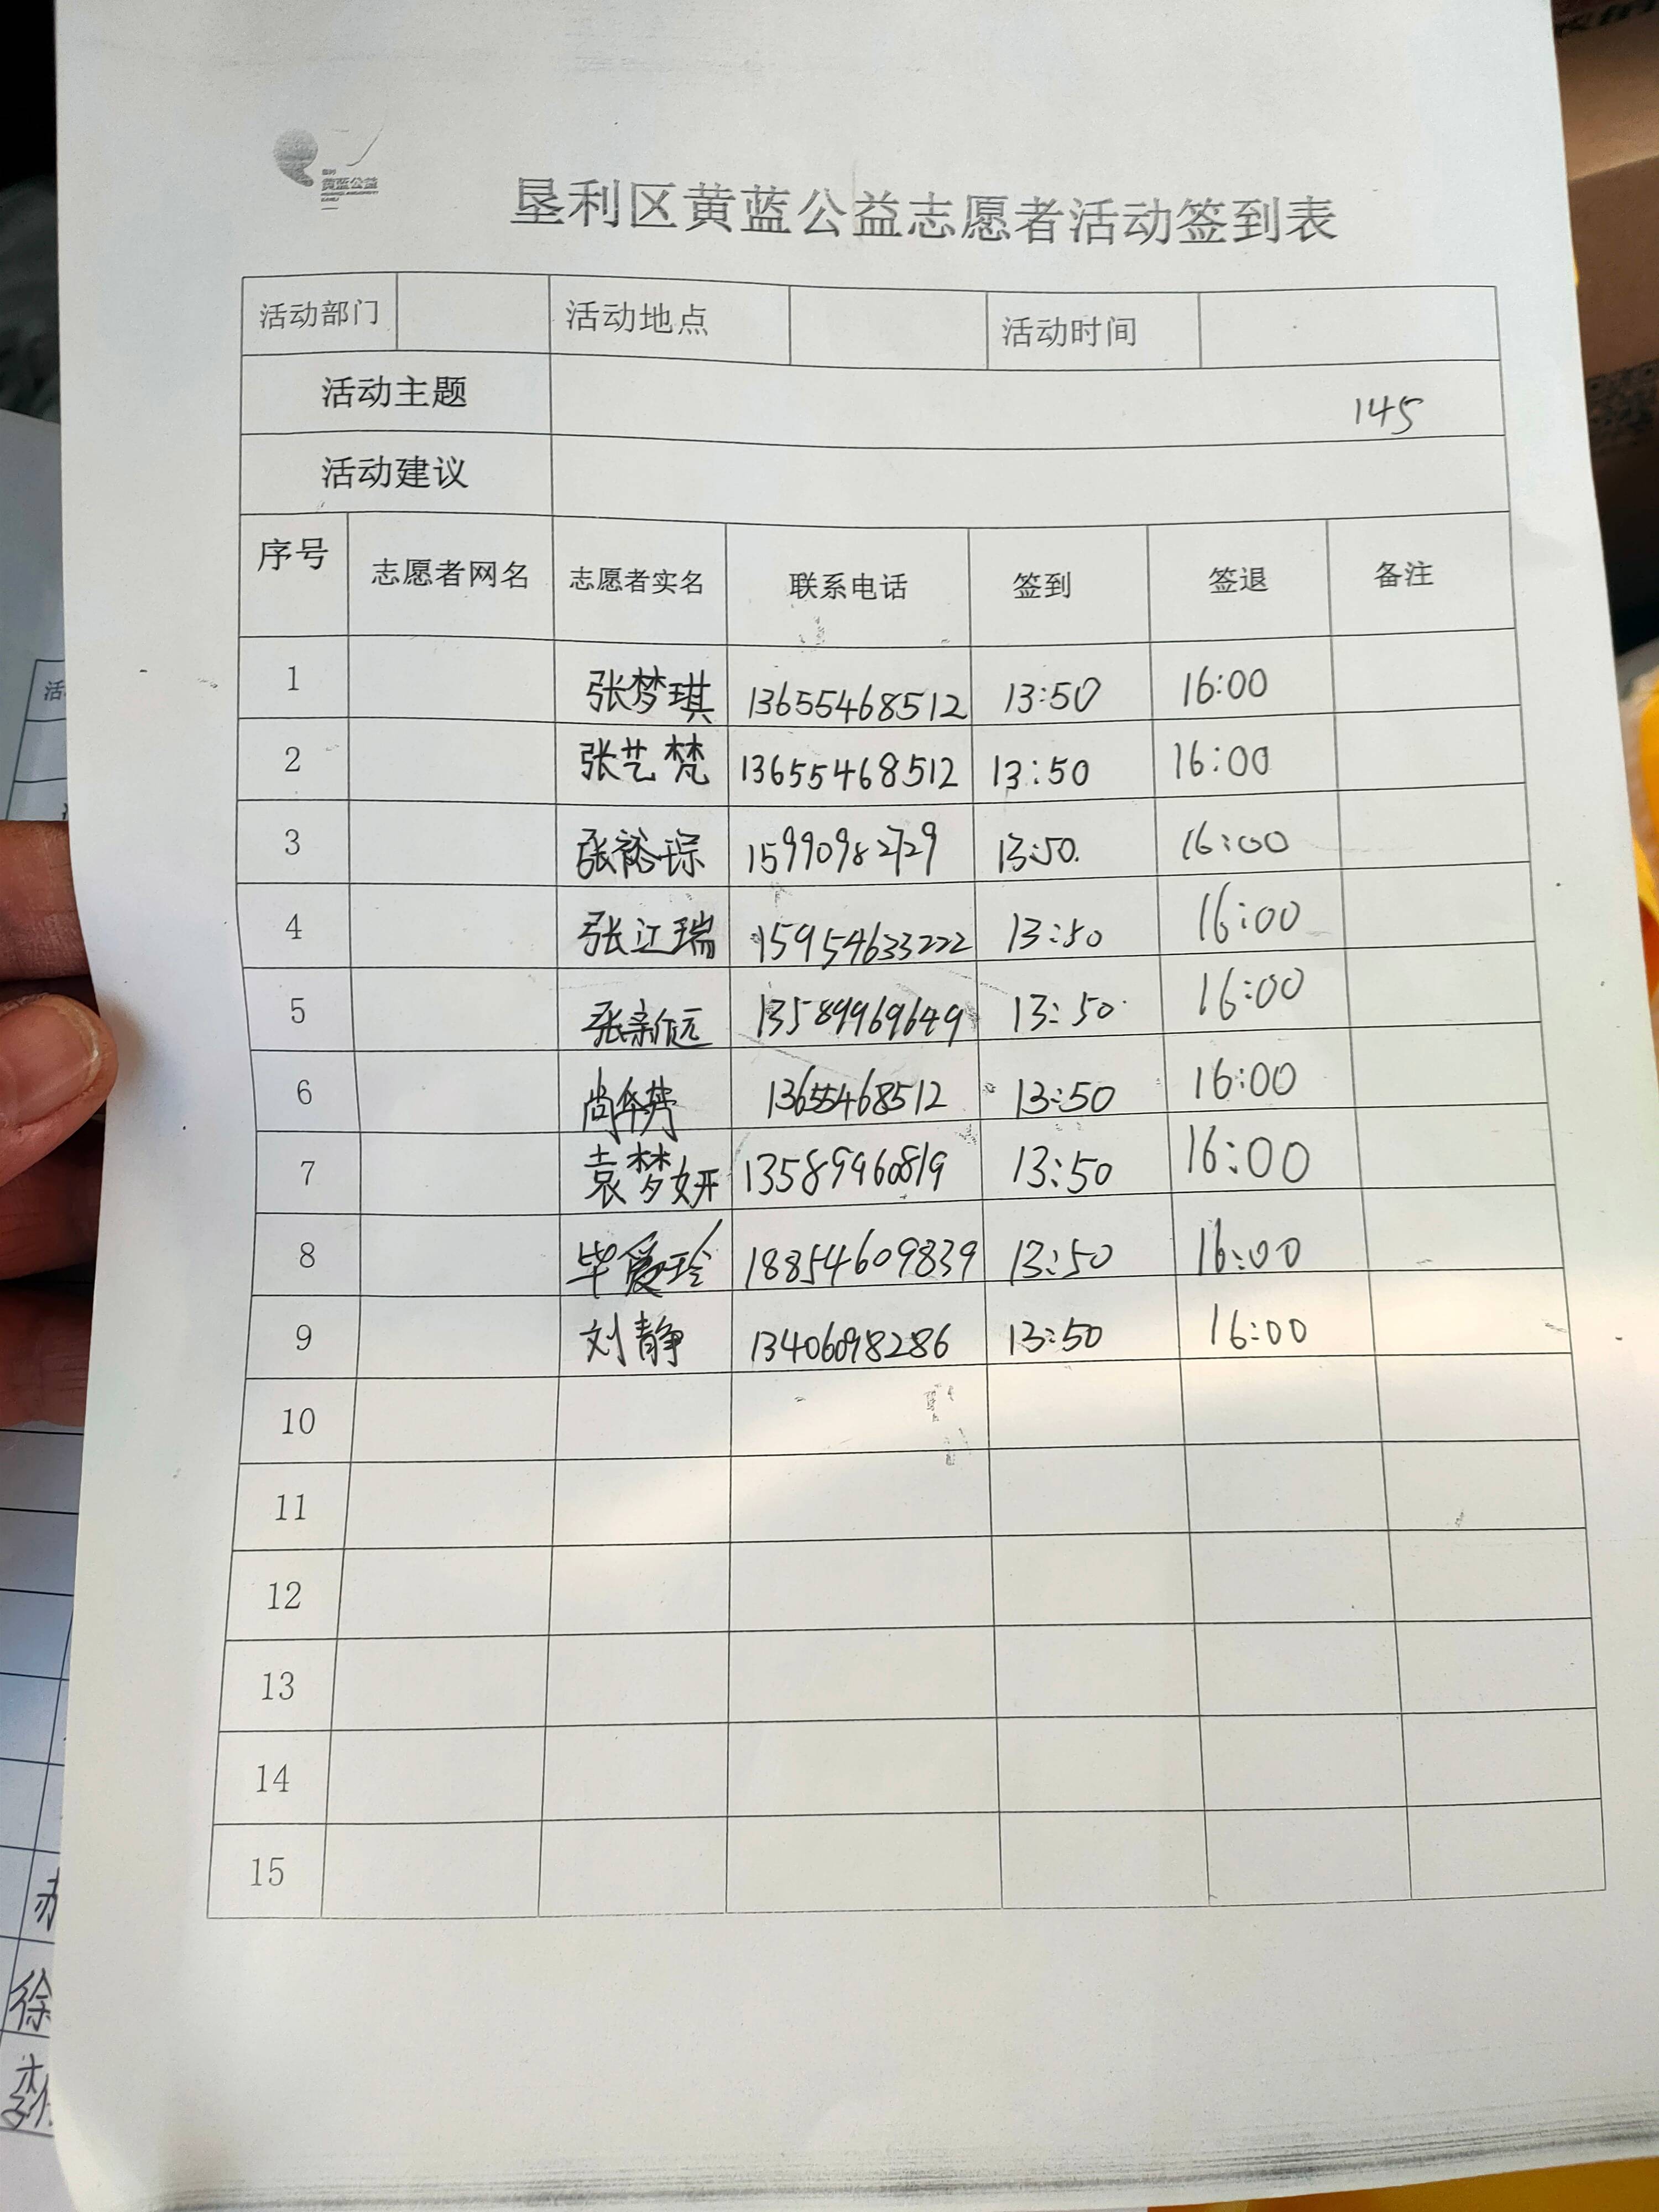 黄蓝公益
垦利区黄蓝公益志愿者活动签到表
活动部门 活动地点 活动时间
活动主题 145
活动建议
序号 志愿者网名 志愿者实名 联系电话 签到 签退 备注
1 张梦琪 13655468512 13:50 16:00
2 张艺梵 13655468512 13:50 16:00
3 张裕琮 15990982729 13:50. 16:00
4 张江瑞 15954633222 13:50 16:00
5 张新远 13589969649 13:50 16:00
6 尚华 13655468512 13:50 16:00
7 袁梦妍 13589960819 13:50 16:00
8 毕爱玲 18854609839 13:50 16:00
9 刘静 13406098286 13:50 16:00
10
11
12
13
14
15
徐
李